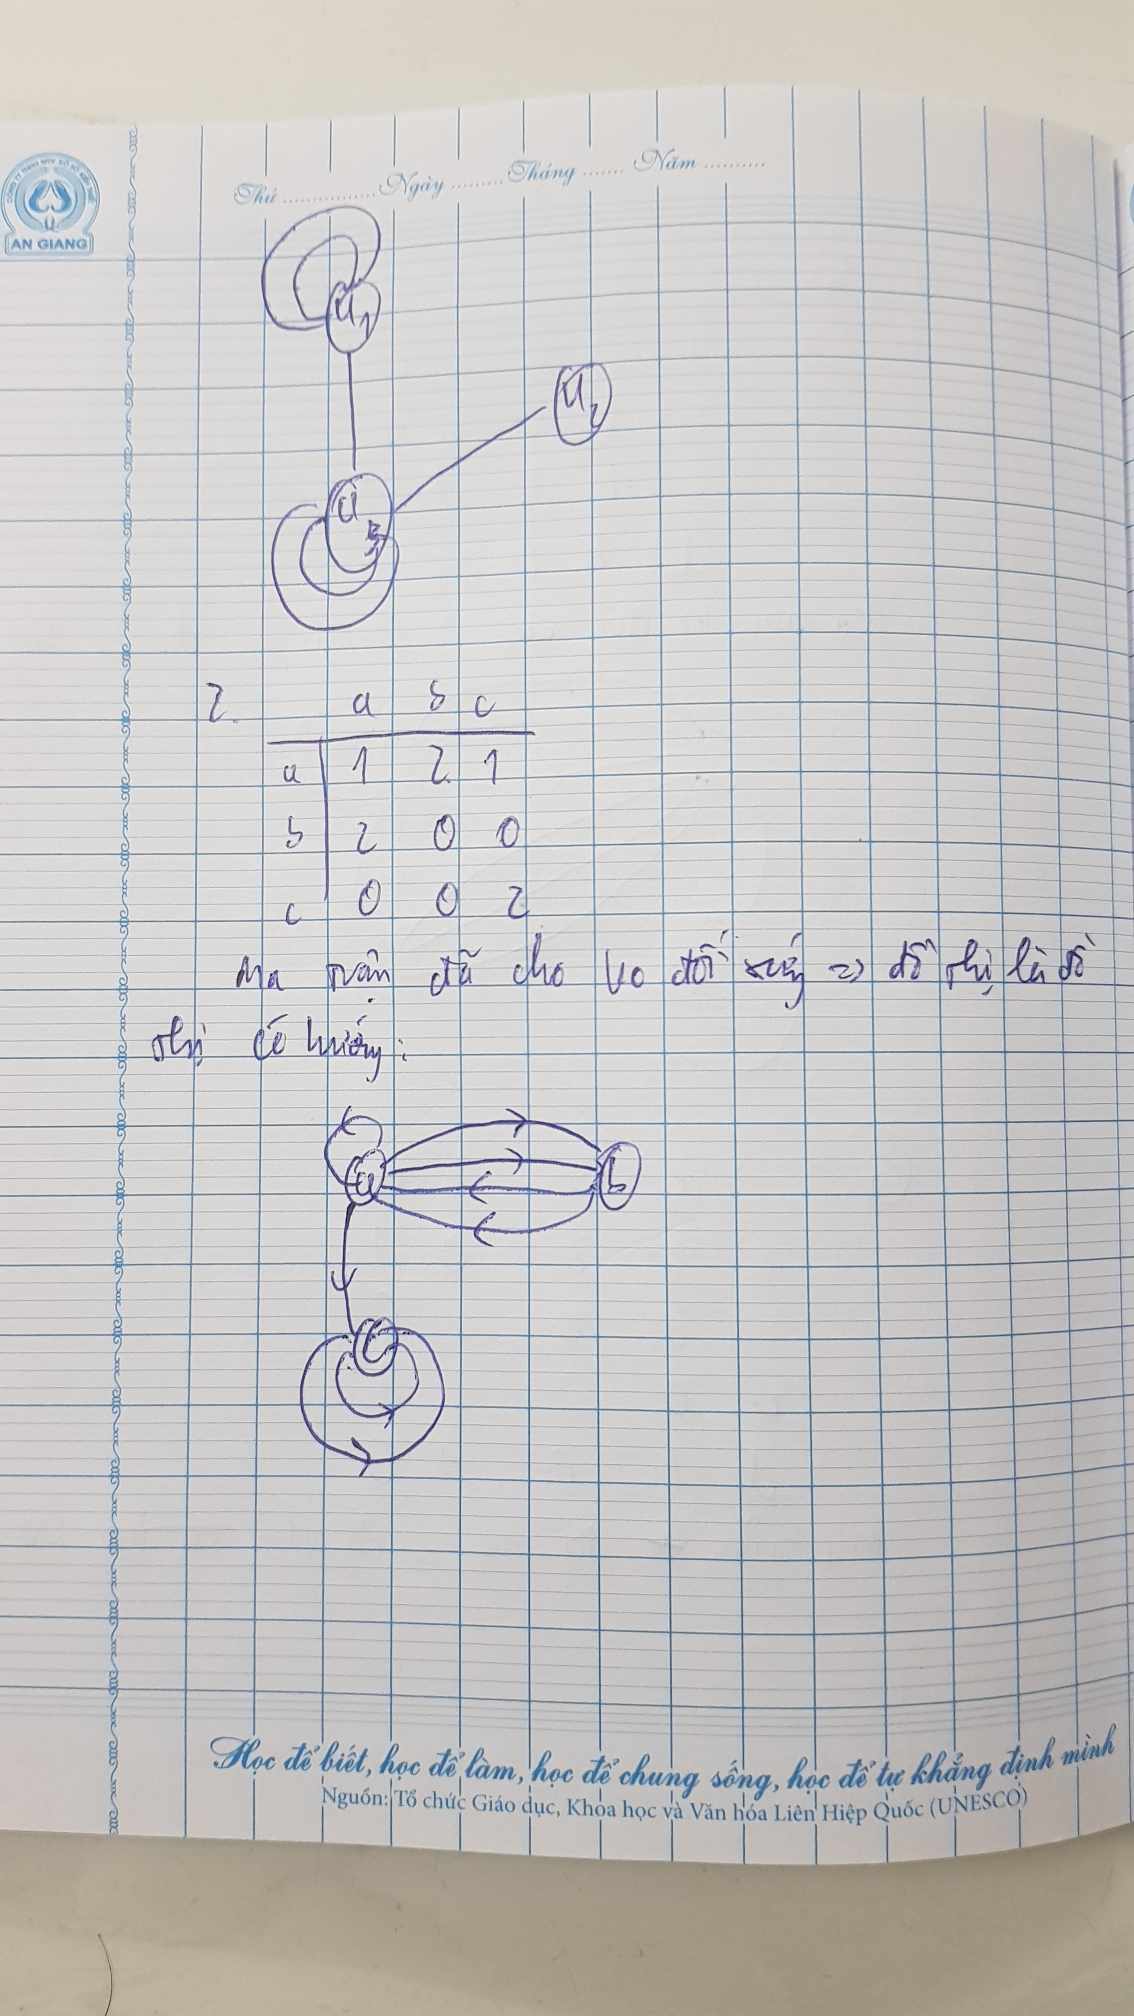 CÔNG TY TNHH MTV XỔ SỐ KIẾN THIẾT
AN GIANG
Thứ ................ Ngày ......... Tháng ....... Năm ..........
U1
U2
U3
2. a b c
a 1 2 1
b 2 0 0
c 0 0 2
Ma trận đã cho ko đối xứng => đồ thị là đồ
thị có hướng:
a
b
c
Học để biết, học để làm, học để chung sống, học để tự khẳng định mình
Nguồn: Tổ chức Giáo dục, Khoa học và Văn hóa Liên Hiệp Quốc (UNESCO)